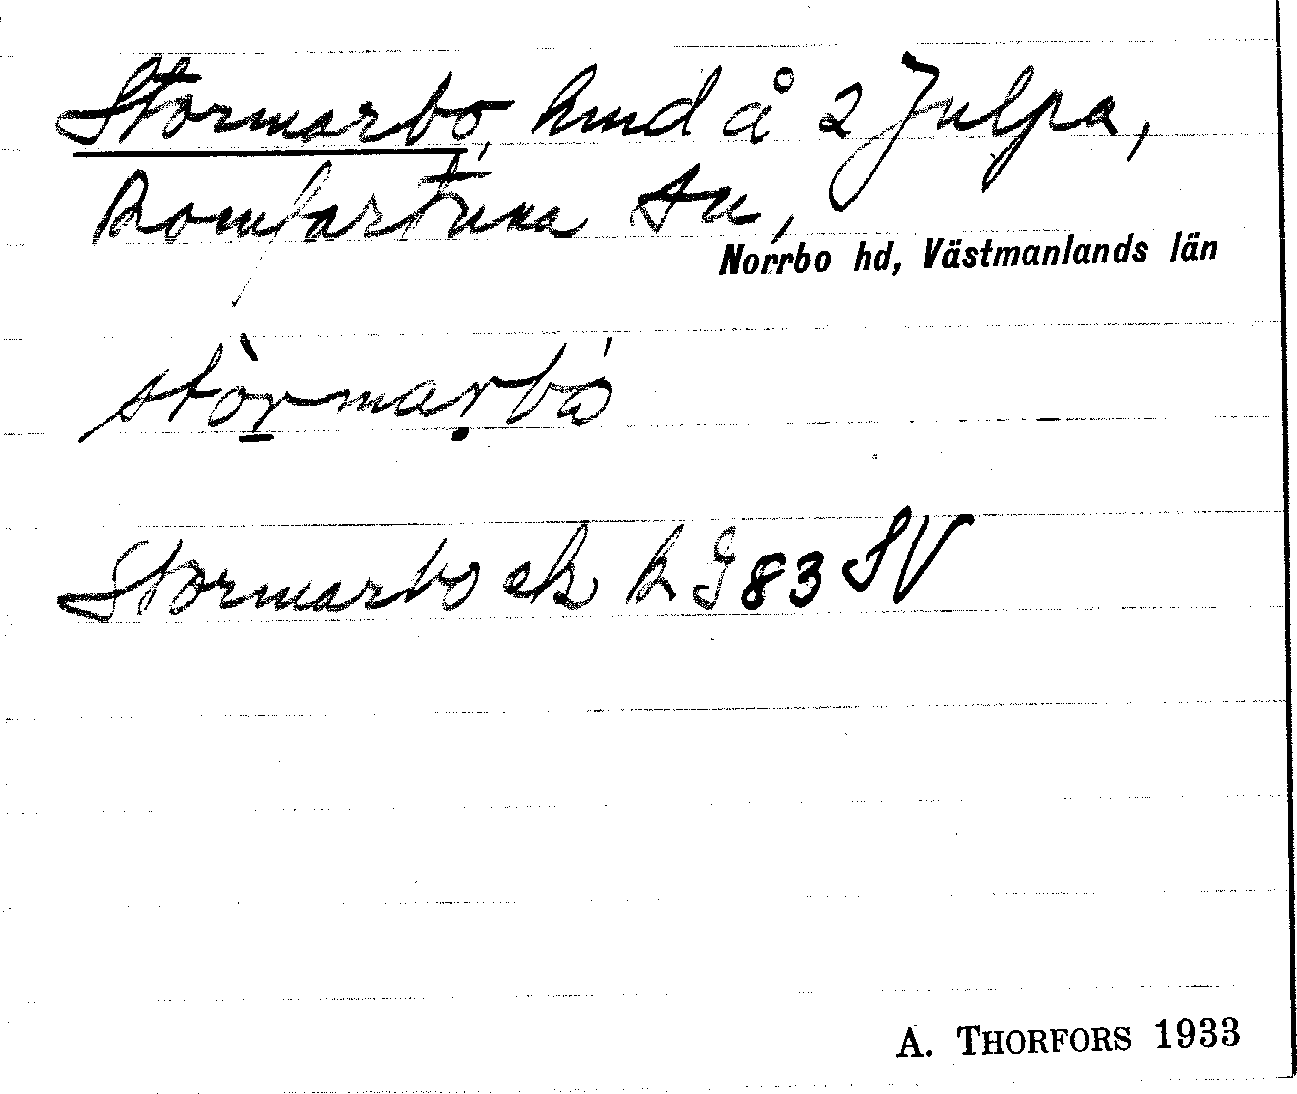 Stormarbo, hmd å 2 Julpa,
Romfartuna sn,
Norrbo hd, Västmanlands län
stòrmarbó
Stormarbo ek h G 83 SV
A. THORFORS 1933